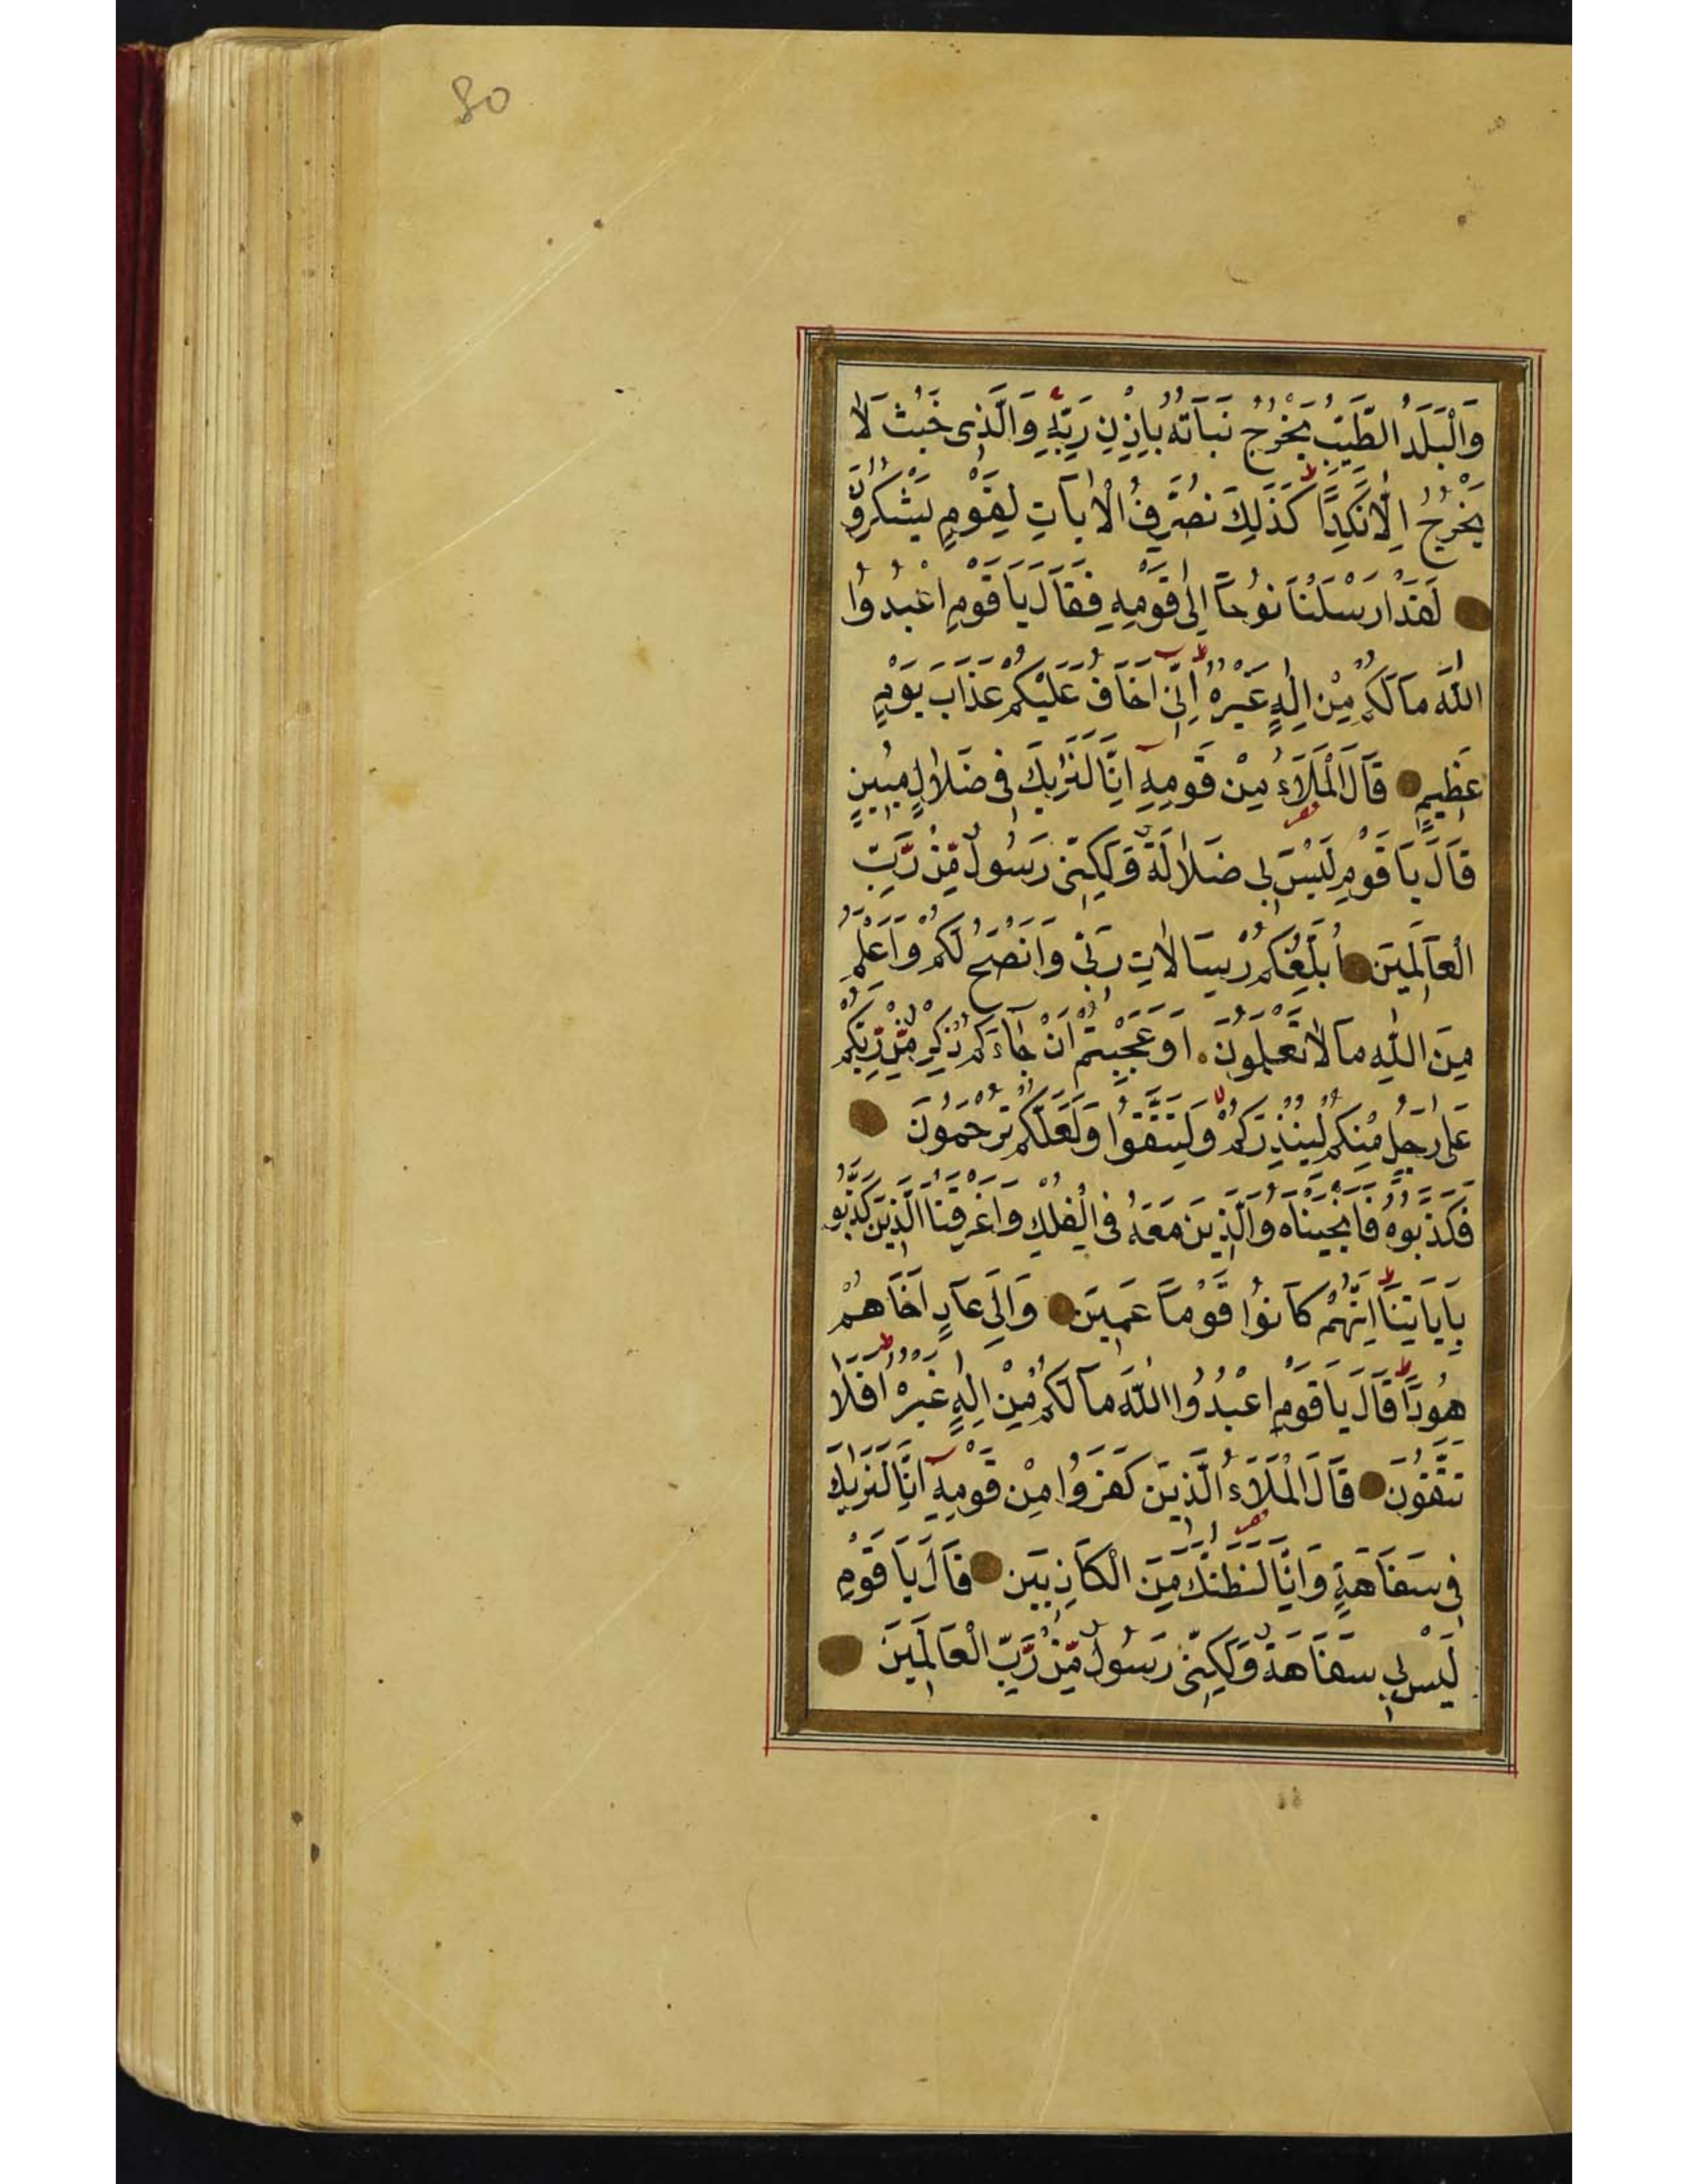 80
وَالْبَلَدُ الطَّيِّبُ يَخْرُجُ نَبَاتُهُ بِاِذْنِ رَبِّهٖ وَالَّذِى خَبُثَ لَا
يَخْرُجُ اِلَّا نَكِدًا كَذٰلِكَ نُصَرِّفُ الْاٰيَاتِ لِقَوْمٍ يَشْكُرُونَ
لَقَدْ اَرْسَلْنَا نُوحًا اِلٰى قَوْمِهِ فَقَالَ يَا قَوْمِ اعْبُدُوا
اللّٰهَ مَا لَكُمْ مِنْ اِلٰهٍ غَيْرُهُ اِنِّى اَخَافُ عَلَيْكُمْ عَذَابَ يَوْمٍ
عَظِيمٍ قَالَ الْمَلَاَءُ مِنْ قَوْمِهِ اِنَّا لَنَرٰيكَ فِى ضَلَالٍ مُبِينٍ
قَالَ يَا قَوْمِ لَيْسَ بِى ضَلَالَةٌ وَلٰكِنِّى رَسُولٌ مِّنْ رَبِّ
الْعَالَمِينَ اُبَلِّغُكُمْ رِسَالَاتِ رَبِّى وَاَنْصَحُ لَكُمْ وَاَعْلَمُ
مِنَ اللّٰهِ مَا لَا تَعْلَمُونَ اَوَعَجِبْتُمْ اَنْ جَاءَكُمْ ذِكْرٌ مِّنْ رَبِّكُمْ
عَلٰى رَجُلٍ مِنْكُمْ لِيُنْذِرَكُمْ وَلِتَتَّقُوا وَلَعَلَّكُمْ تُرْحَمُونَ
فَكَذَّبُوهُ فَاَنْجَيْنَاهُ وَالَّذِينَ مَعَهُ فِى الْفُلْكِ وَاَغْرَقْنَا الَّذِينَ كَذَّبُو
بِاٰيَاتِنَا اِنَّهُمْ كَانُوا قَوْمًا عَمِينَ وَاِلٰى عَادٍ اَخَاهُمْ
هُودًا قَالَ يَا قَوْمِ اعْبُدُوا اللّٰهَ مَا لَكُمْ مِنْ اِلٰهٍ غَيْرُهُ اَفَلَا
تَتَّقُونَ قَالَ الْمَلَاَءُ الَّذِينَ كَفَرُوا مِنْ قَوْمِهِ اِنَّا لَنَرٰيكَ
فِى سَفَاهَةٍ وَاِنَّا لَنَظُنُّكَ مِنَ الْكَاذِبِينَ قَالَ يَا قَوْمِ
لَيْسَ بِى سَفَاهَةٌ وَلٰكِنِّى رَسُولٌ مِّنْ رَبِّ الْعَالَمِينَ